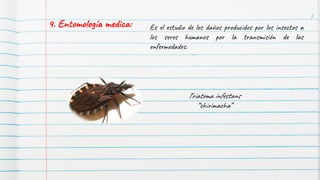 4. Entomología medica:
Es el estudio de los daños producidos por los insectos a
los seres humanos por la transmisión de las
enfermedades.
Triatoma infestans
"chirimacha"